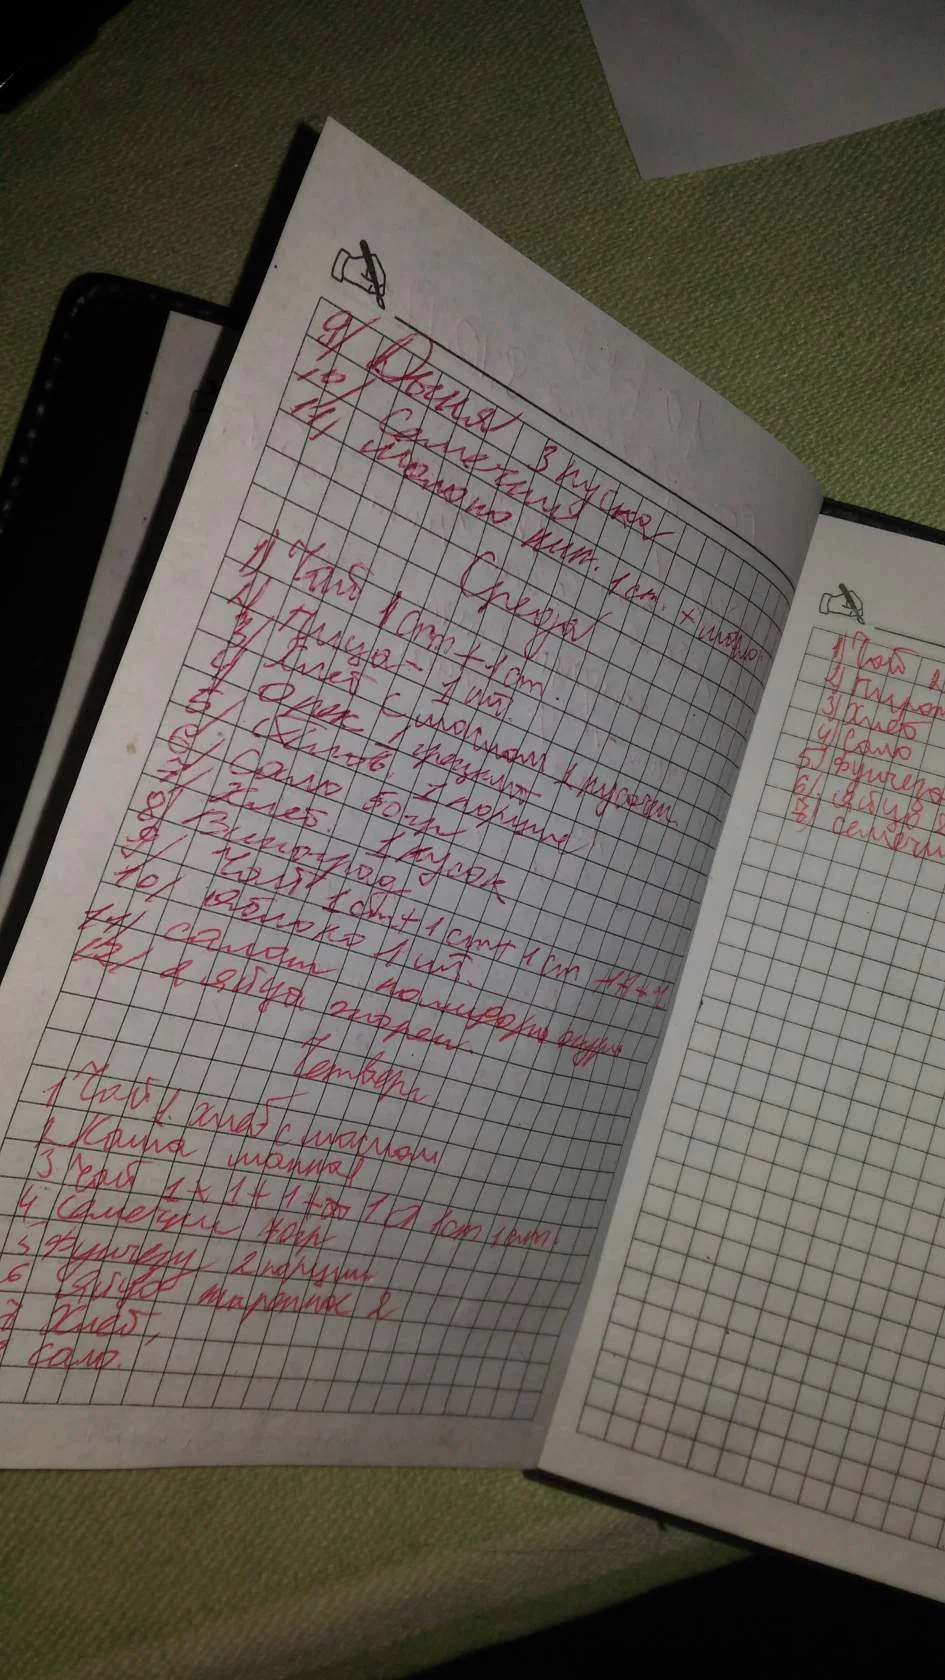 9) Дыня 3 куска
10) Семечки
11) Молоко кип. 1 ст. +
Среда
1) Чай 1 ст + 1 ст.
2) Пицца - 1 шт.
3) Хлеб с маслом 2 кусочка
4) Орех грецкий
5) 1 порция
6) Сало 50 гр
7) Хлеб 1 кусок
8) Виноград
9) Чай 1 ст + 1 ст + 1 ст
10) Яблоко 1 шт.
11) Салат помидоры огурц
12) 2 яйца жарен.
Четверг
1 Чай 1. хлеб с маслом
2 Каша манная
3 Чай 1 + 1 + 1 + 1 1 ст 1 ст.
4 Семечки 70 гр
5 Фунчезу 2 порции
6 Яйцо жареное 2
7 Хлеб,
сало.
1) Чай 2
2) Пирож
3) Хлеб
4) Сало
5) Фунчеза
6) Яйца
7) Семечки